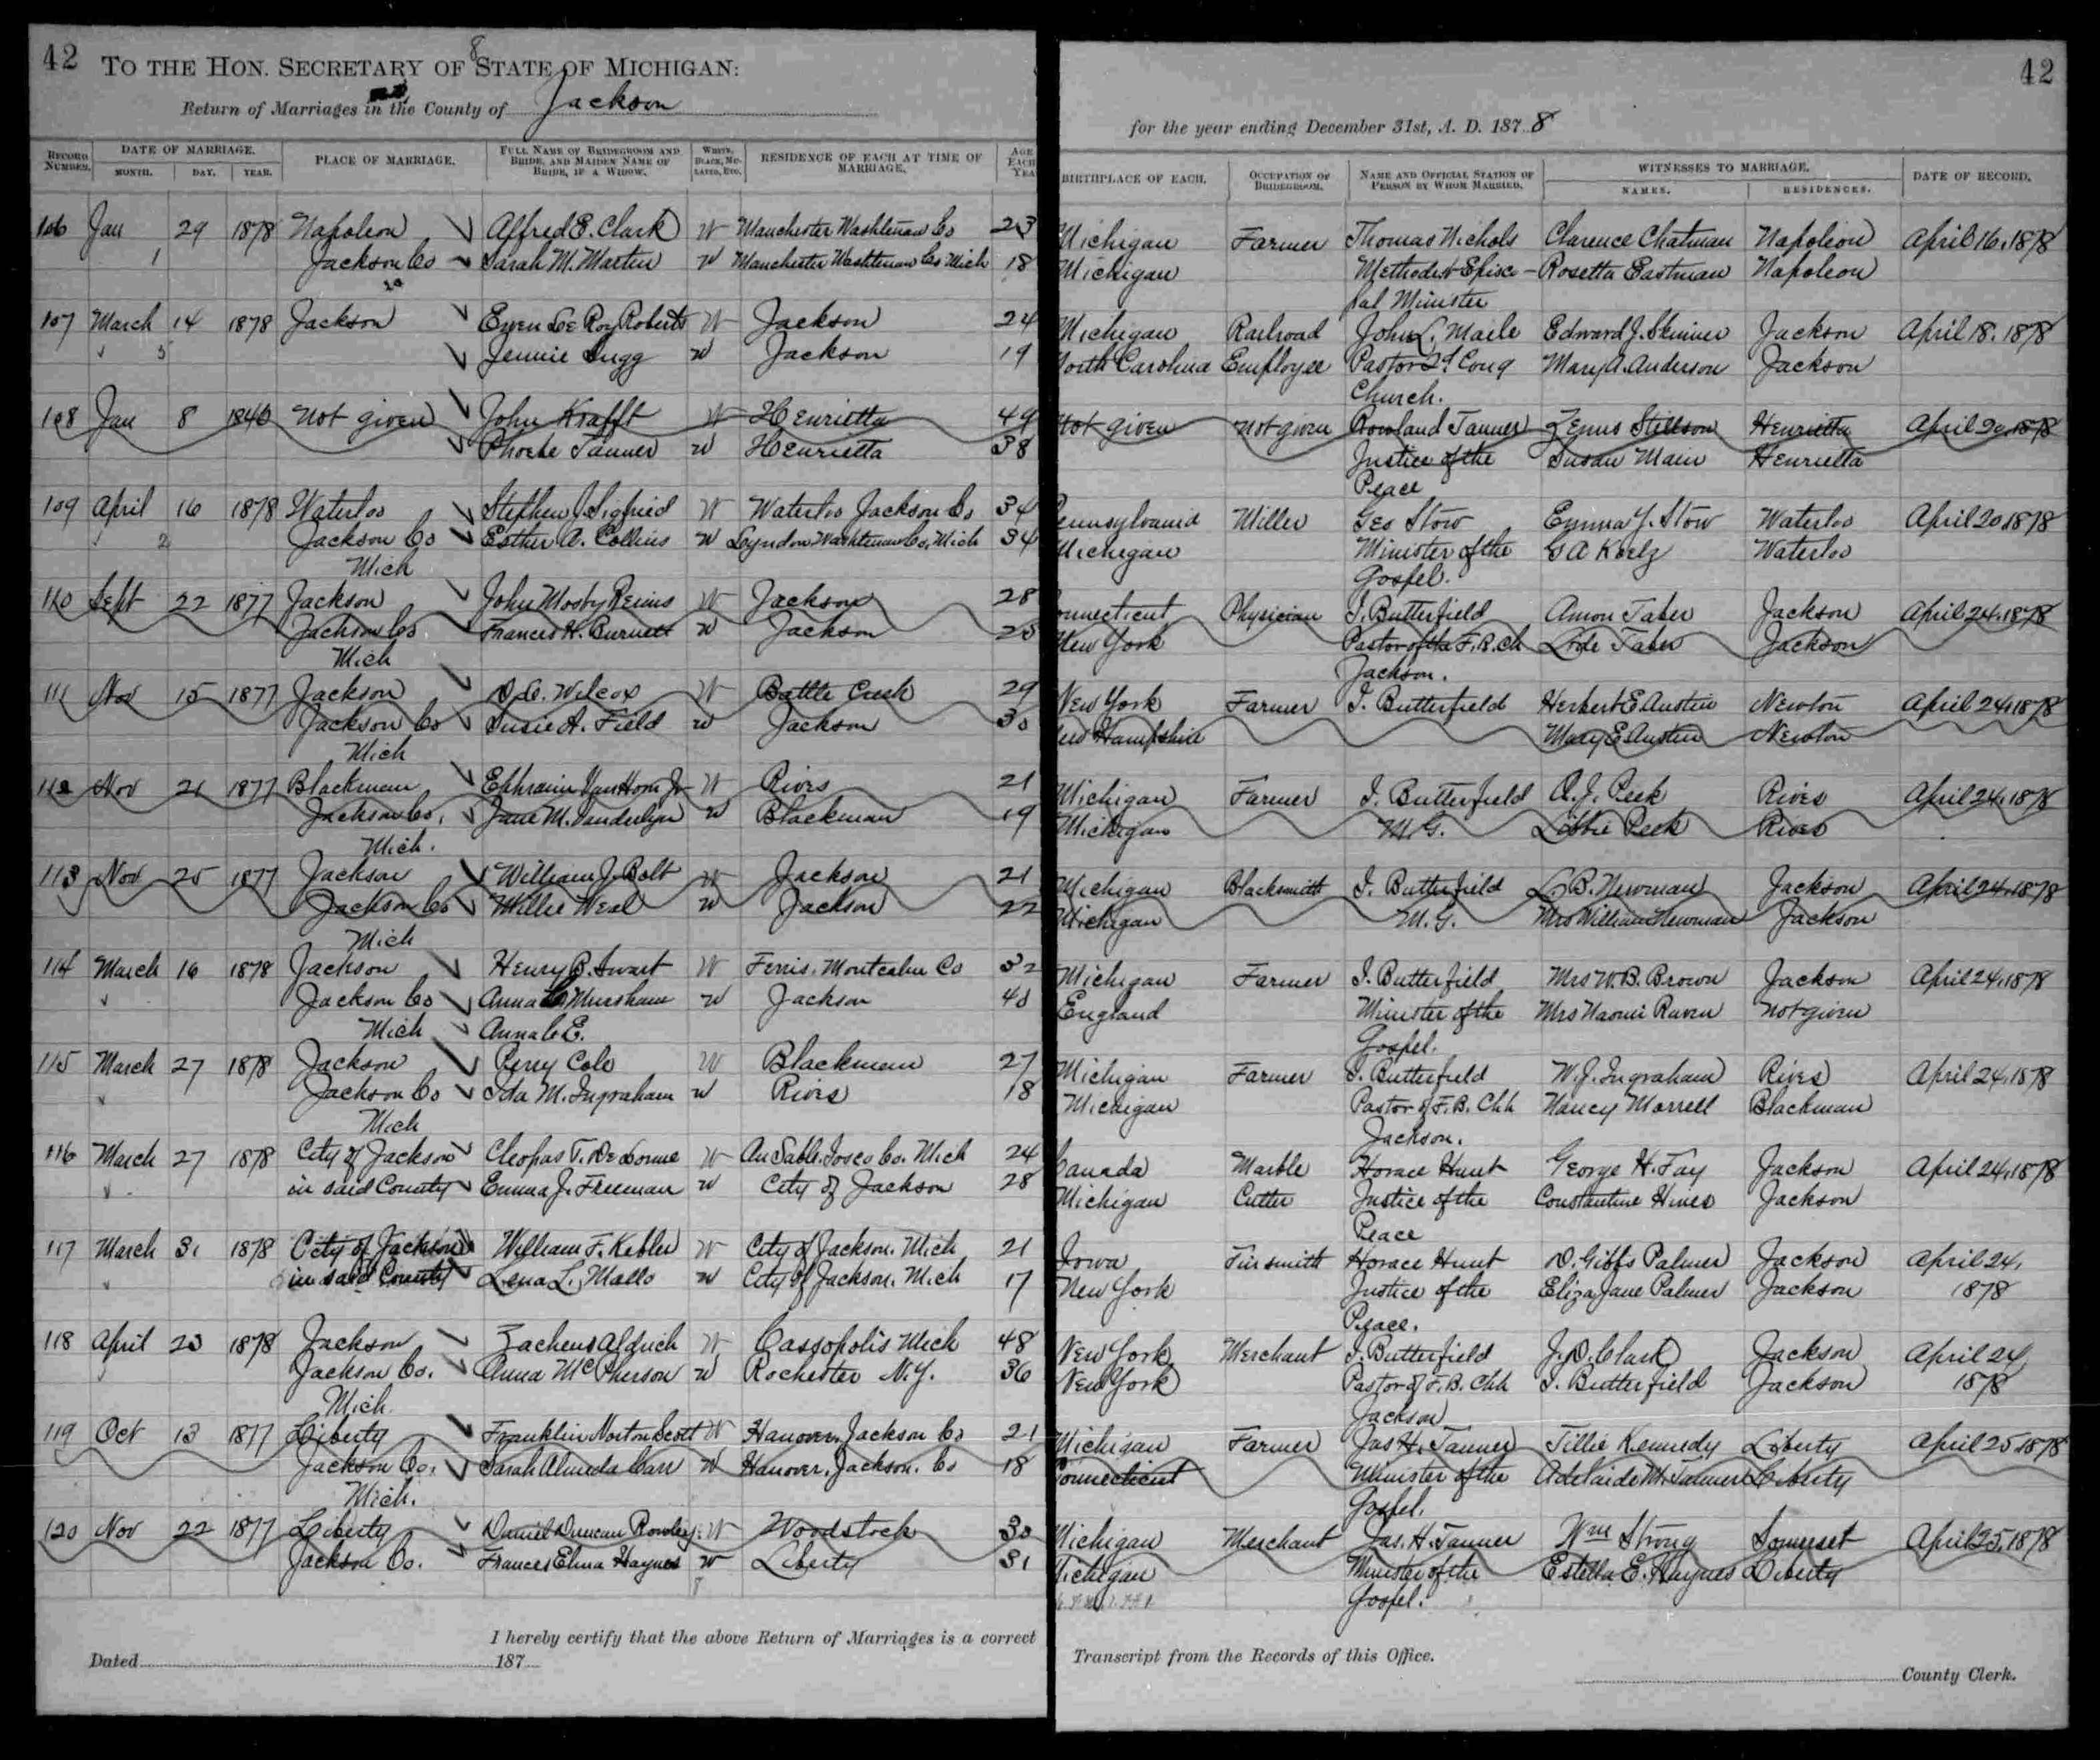 42
42
TO THE HON. SECRETARY OF STATE OF MICHIGAN:
8
Return of Marriages in the County of Jackson
for the year ending December 31st, A. D. 1878
RECORD NUMBER. DATE OF MARRIAGE. PLACE OF MARRIAGE. FULL NAME OF BRIDEGROOM AND BRIDE, AND MAIDEN NAME OF BRIDE, IF A WIDOW. WHITE, BLACK, MULATTO, ETC. RESIDENCE OF EACH AT TIME OF MARRIAGE. AGE EACH YEA
MONTH. DAY. YEAR.
BIRTHPLACE OF EACH. OCCUPATION OF BRIDEGROOM. NAME AND OFFICIAL STATION OF PERSON BY WHOM MARRIED. WITNESSES TO MARRIAGE. DATE OF RECORD.
NAMES. RESIDENCES.
106 Jan 29 1878 Napoleon Alfred E. Clark W Manchester Washtenaw Co 23 Michigan Farmer Thomas Nichols Clarence Chatman Napoleon April 16, 1878
1 Jackson Co Sarah M. Martin W Manchester Washtenaw Co Mich 18 Michigan Methodist Episco- Rosetta Eastman Napoleon
pal Minister
107 March 14 1878 Jackson Ewen Le Roy Roberts W Jackson 24 Michigan Railroad John L. Maile Edward J. Skinner Jackson April 18. 1878
5 Jennie Sugg W Jackson 19 North Carolina Employee Pastor Cong Mary A. Anderson Jackson
Church.
108 Jan 8 1846 not given John Krafft W Henrietta 49 Not given not given Rowland Tanner Zenus Stillson Henrietta April 20, 1878
Phoebe Tanner W Henrietta 38 Justice of the Susan Main Henrietta
Peace
109 April 16 1878 Waterloo Stephen J. Sigfried W Waterloo Jackson Co 34 Pennsylvania Miller Geo Stow Emma Y. Stow Waterloo April 20, 1878
2 Jackson Co Esther A. Collins W Lyndon Washtenaw Co, Mich 34 Michigan Minister of the G A Koelz Waterloo
Mich Gospel.
110 Sept 22 1877 Jackson John Mosby W Jackson 28 onnecticut Physician I. Butterfield Amon Taber Jackson April 24, 1878
Jackson Co Frances H. Burnett W Jackson New York Pastor of the F. B. Ch Taber Jackson
Mich Jackson.
111 Nov 15 1877 Jackson Wilcox W Battle Creek 29 New York Farmer I. Butterfield Herbert E Austin Newton April 24, 1878
Jackson Co Susie A. Field W Jackson 30 New Hampshire Mary E Austin Newton
Mich
112 Nov 21 1877 Blackman Ephraim Van Horn Jr W Rives 21 Michigan Farmer I. Butterfield A. J. Peek Rives April 24, 1878
Jackson Co, Jane M. Vanderlyn W Blackman 19 Michigan M. G. Libbie Peek Rives
Mich.
113 Nov 25 1877 Jackson William J. Bolt W Jackson 21 Michigan Blacksmith I. Butterfield L. B. Newman Jackson April 24, 1878
Jackson Co Millie Weal W Jackson 22 Michigan M. G. Mrs William Newman Jackson
Mich
114 March 16 1878 Jackson Henry B. Swart W Ferris, Montcalm Co 32 Michigan Farmer I. Butterfield Mrs W. B. Brown Jackson April 24, 1878
Jackson Co Anna W Jackson 40 England Minister of the Mrs Naomi Raven not given
Mich Gospel.
115 March 27 1878 Jackson Perry Cole W Blackman 27 Michigan Farmer I. Butterfield W. J. Ingraham Rives April 24, 1878
Jackson Co Ida M. Ingraham W Rives 18 Michigan Pastor of F. B. Chh Nancy Morrell Blackman
Mich Jackson.
116 March 27 1878 City of Jackson Cleopas T. W Au Sable, Iosco Co. Mich 24 Canada Marble Horace Hunt George H. Fay Jackson April 24, 1878
in said County Emma J. Freeman W City of Jackson 28 Michigan Cutter Justice of the Constantine Hines Jackson
Peace
117 March 31 1878 City of Jackson William F. Kebler W City of Jackson. Mich 21 Iowa Tinsmith Horace Hunt D. Gibbs Palmer Jackson April 24,
in said County Lena L. Mallo W City of Jackson. Mich 17 New York Justice of the Eliza Jane Palmer Jackson 1878
Peace.
118 April 23 1878 Jackson Zacheus Aldrich W Cassopolis Mich 48 New York Merchant I. Butterfield J. D. Clark Jackson April 24
Jackson Co. Anna McPherson W Rochester N.Y. 36 New York Pastor of F. B. Chh I. Butterfield Jackson 1878
Mich. Jackson
119 Oct 13 1877 Liberty Franklin Norton Scott W Hanover, Jackson Co 21 Michigan Farmer Jas H. Tanner Tillie Kennedy Liberty April 25 1878
Jackson Co. Sarah Almeda Carr W Hanover, Jackson. Co 18 Connecticut Minister of the Adelaide M. Tanner Liberty
Mich. Gospel.
120 Nov 22 1877 Liberty Daniel Duncan Rowley W Woodstock 30 Michigan Merchant Jas. H. Tanner Wm Strong Somerset April 25, 1878
Jackson Co. Frances Elma Haynes W Liberty 31 Michigan Minister of the Estella E. Haynes Liberty
Gospel.
I hereby certify that the above Return of Marriages is a correct
Transcript from the Records of this Office.
Dated 187
County Clerk.